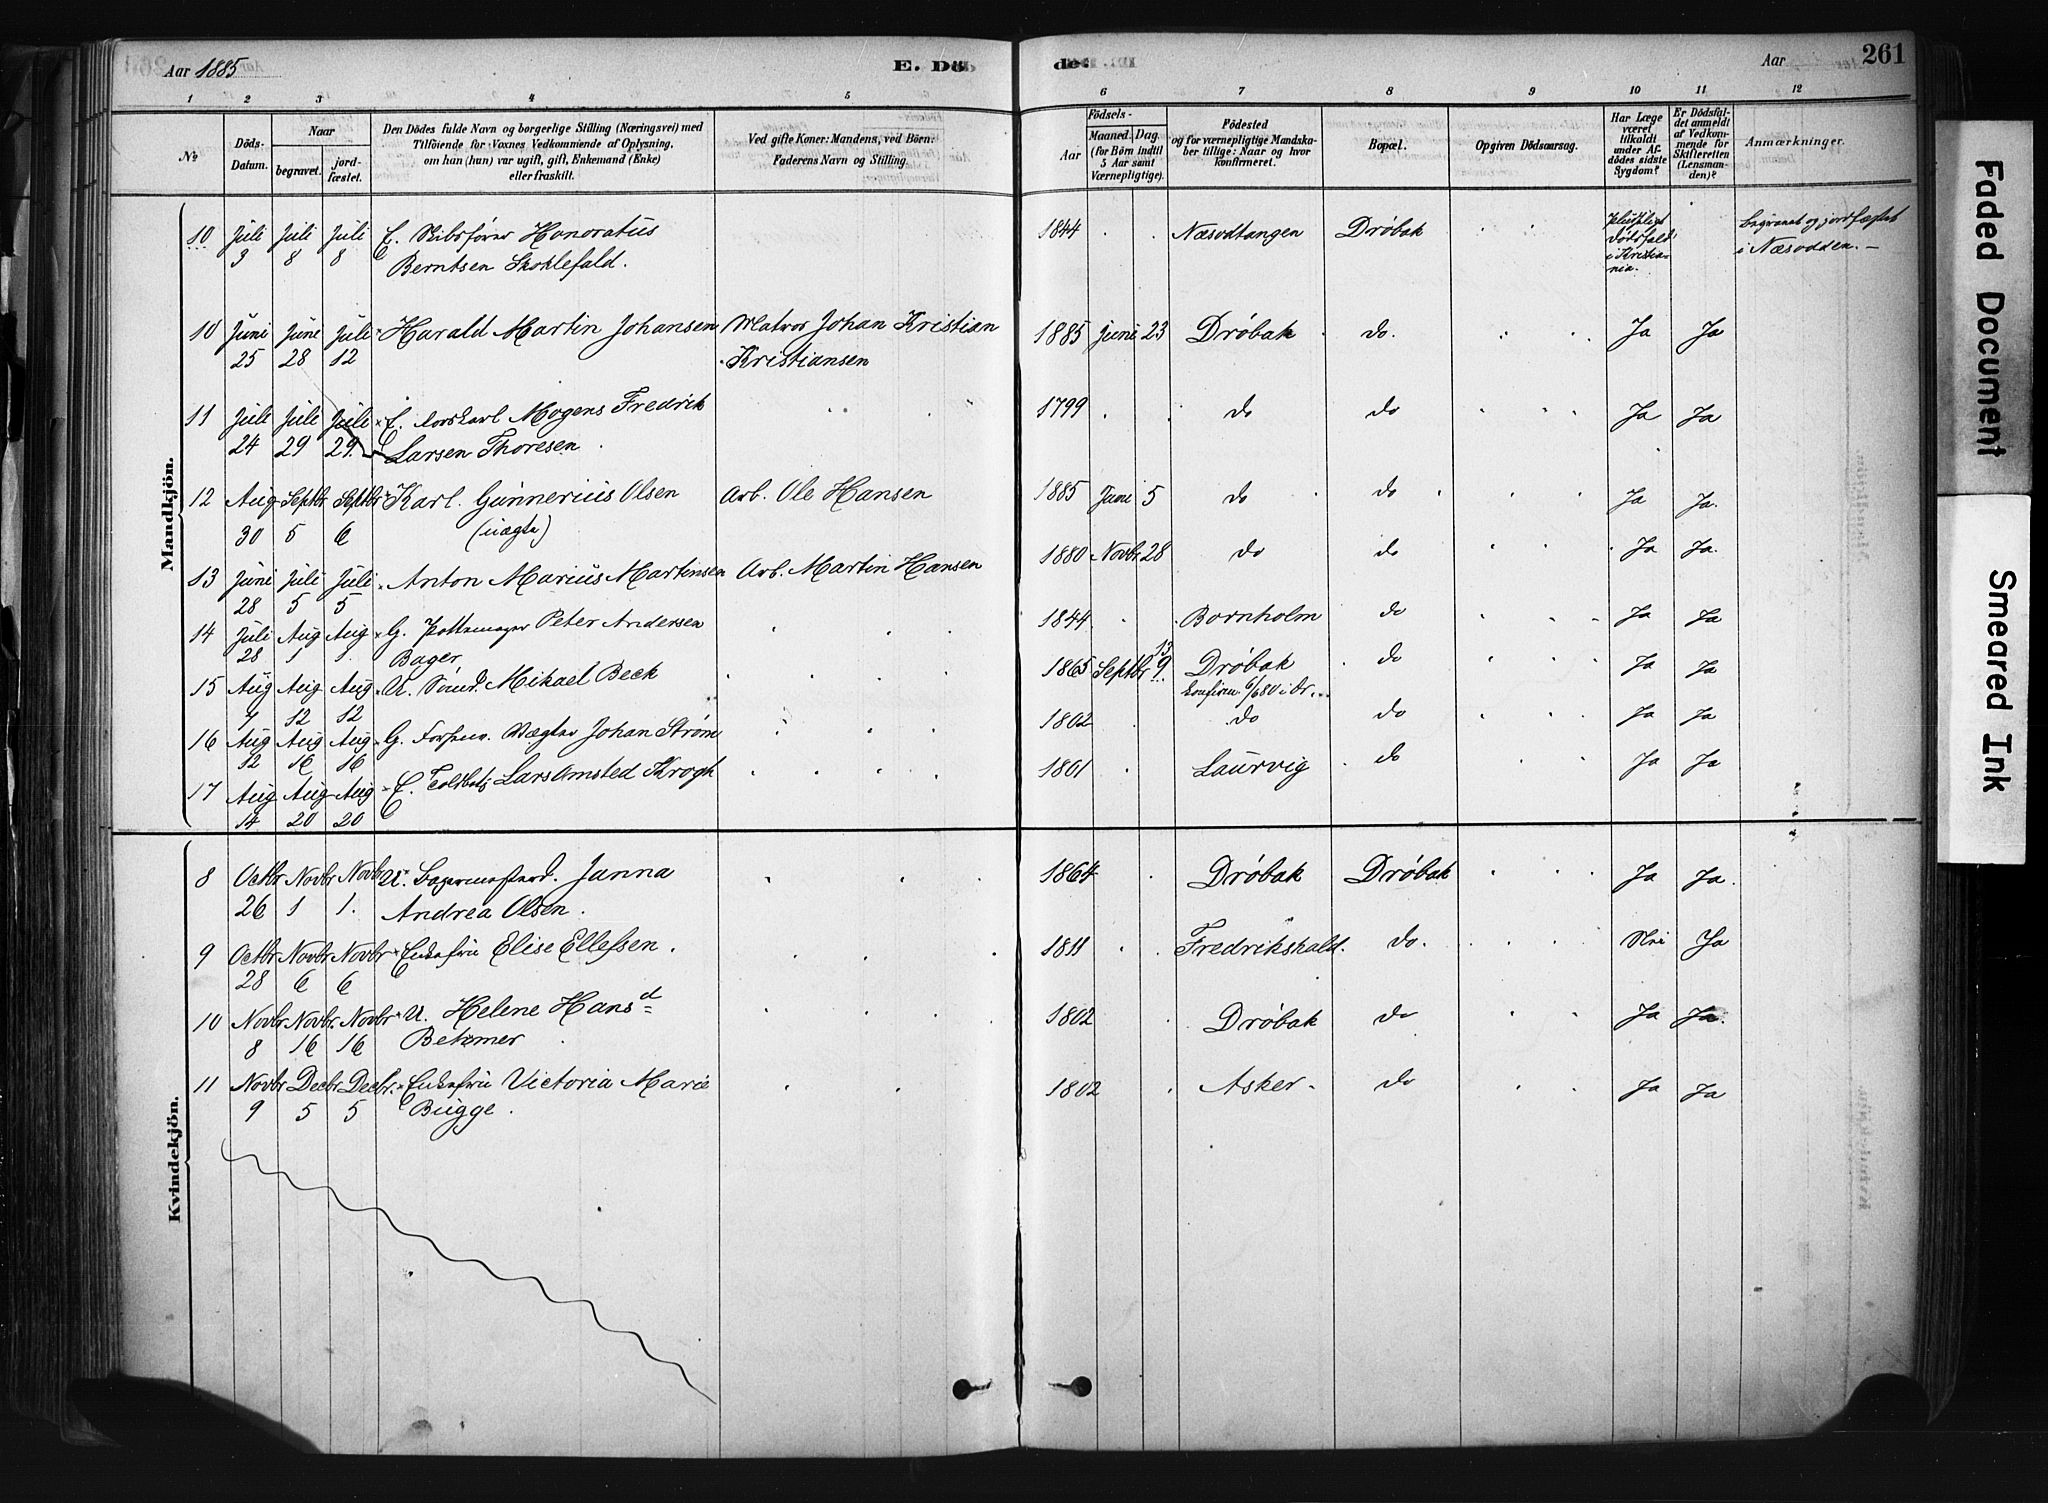 Aar 1885
E. Dö
de.
Aar
261
1 2 3 4 5 6 7 8 9 10 11 12
№
Döds-Datum.
Naar
begravet.
jordfæstet.
Den Dödes fulde Navn og borgerlige Stilling (Næringsvei) med
Tilföiende for Voxnes Vedkommende af Oplysning,
om han (hun) var ugift, gift, Enkemand (Enke)
eller fraskilt.
Ved gifte Koner: Mandens, ved Börn:
Faderens Navn og Stilling.
Födsels-
Aar
Maaned. Dag.
(for Börn indtil
5 Aar samt
Værnepligtige).
Födested
og for værnepligtige Mandskaber tillige: Naar og hvor
konfirmeret.
Bopæl.
Opgiven Dödsaarsag.
Har Læge været tilkaldt under Afdödes sidste Sygdom?
Er Dödsfaldet anmeldt af Vedkommende for Skifteretten (Lensmanden)?
Anmærkninger.
Mandkjön.
10 Juli 3 Juli 8 Juli 8 E. Skibsfører Honoratus
Berntsen Skoklefald.
1844 Næsodtangen Drøbak
Pludseligt Dødsfald i Kristiania.
Begravet og jordfæstet
i Næsodden. —
10 Juni 25 Juni 28 Juli 12 Harald Martin Johansen Matros Johan Kristian
Kristiansen
1885 Juni 23 Drøbak do. Ja Ja
11 Juli 24 Juli 29 Juli 29. E. Mogens Fredrik
Larsen Thoresen
1799 do do Ja Ja
12 Aug 30 Septbr 5 Septbr 6 Karl Gunnerius Olsen Arb. Ole Hansen
(uægte)
1885 Juni 5 do do Ja Ja.
13 Juni 28 Juli 5 Juli 5 Anton Marius Martinsen Arb. Martin Hansen
1880 Novbr. 28 do do Ja Ja.
14 Juli 28 Aug 1 Aug 1. G. Pottemager Peter Andersen
Bager
1844 Bornholm do Ja Ja
15 Aug 7 Aug 12 Aug 12 U. Mikael Beck
1865 Septbr 9 13 Drøbak do Ja Ja
konfirm. 6/6 80 i Dr.
16 Aug 12 Aug 16 Aug 16 G. Vægter Johan Strøm
1802 do do Ja Ja
17 Aug 14 Aug 20 Aug 20 E. Toldbetj. Lars Omsted Krogh
1801 Laurvig do Ja Ja
Kvindekjön.
8 Octbr 26 Novbr 1 Novbr 1. U. Bagermesterd. Janna
Andrea Olsen.
1864 Drøbak Drøbak Ja Ja.
9 Octbr 28 Novbr 6 Novbr 6 Enkefru Elise Ellefsen.
1811 Fredrikshald. do. Nei Ja
10 Novbr 8 Novbr. 16 Novbr 16 U. Helene Hansd
Betzmer
1802 Drøbak do Ja Ja.
11 Novbr 9 Decbr 5 Decbr. 5 Enkefru Victoria Marie
Bugge.
1802 Asker do Ja Ja
Faded Document
Smeared Ink